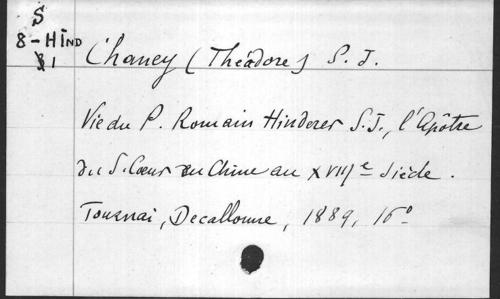 S
8-HIND
1
Chaney (Théodore) S. J.
Vie du P. Romain Hinderer S.J., l'Apôtre
du S. Coeur en Chine au XVIIIe siècle.
Tournai, Decallonne, 1889, 16°